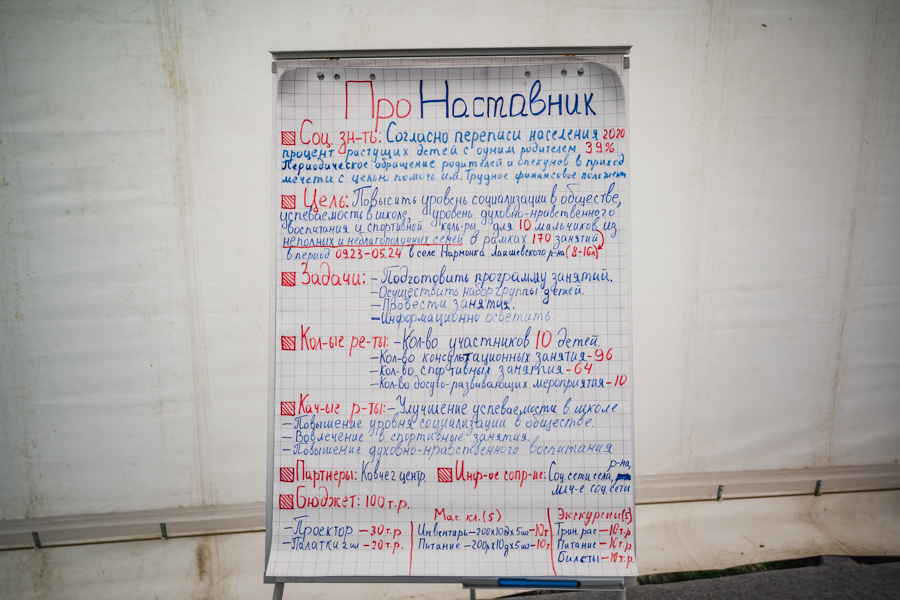 Про Наставник
Соц. зн-ть: Согласно переписи населения 2020
процент растущих детей с одним родителем 39%
Периодическое обращение родителей и опекунов в приход
мечети с целью помочь им. Трудное финансовое положен
Цель: Повысить уровень социализации в обществе,
успеваемость в школе, уровень духовно-нравственного
воспитания и спортивной куль-ры для 10 мальчиков из
неполных и неблагополучных семей в рамках 170 занятий
в период 09.23-05.24 в селе Нармонка Лаишевского р-на (8-16л)
Задачи: - Подготовить программу занятий.
- Осуществить набор группы детей.
- Провести занятия.
- Информационно осветить.
Кол-ые ре-ты: - Кол-во участников 10 детей.
- Кол-во консультационных занятия - 96
- Кол-во спортивных занятия - 64
- Кол-во досуго-развивающих мероприятия - 10
Кач-ые р-ты: - Улучшение успеваемости в школе
- Повышение уровня социализации в обществе.
- Вовлечение в спортивные занятия.
- Повышение духовно-нравственного воспитания
Партнеры: Ковчег центр Инф-ое сопр-ие: Соц. сети села, р-на,
Меч-е соц сети
Бюджет: 100 т.р.
Мас. кл. (5) Экскурсии (5)
- Проектор - 30 т.р Инвентарь - 200х10дх5ш - 10т Тран. рас - 10 т.р
- Палатки 2ш - 20 т.р. Питание - 200рх10дх5ш - 10т Питание - 10 т.р
Билеты - 10 т.р.